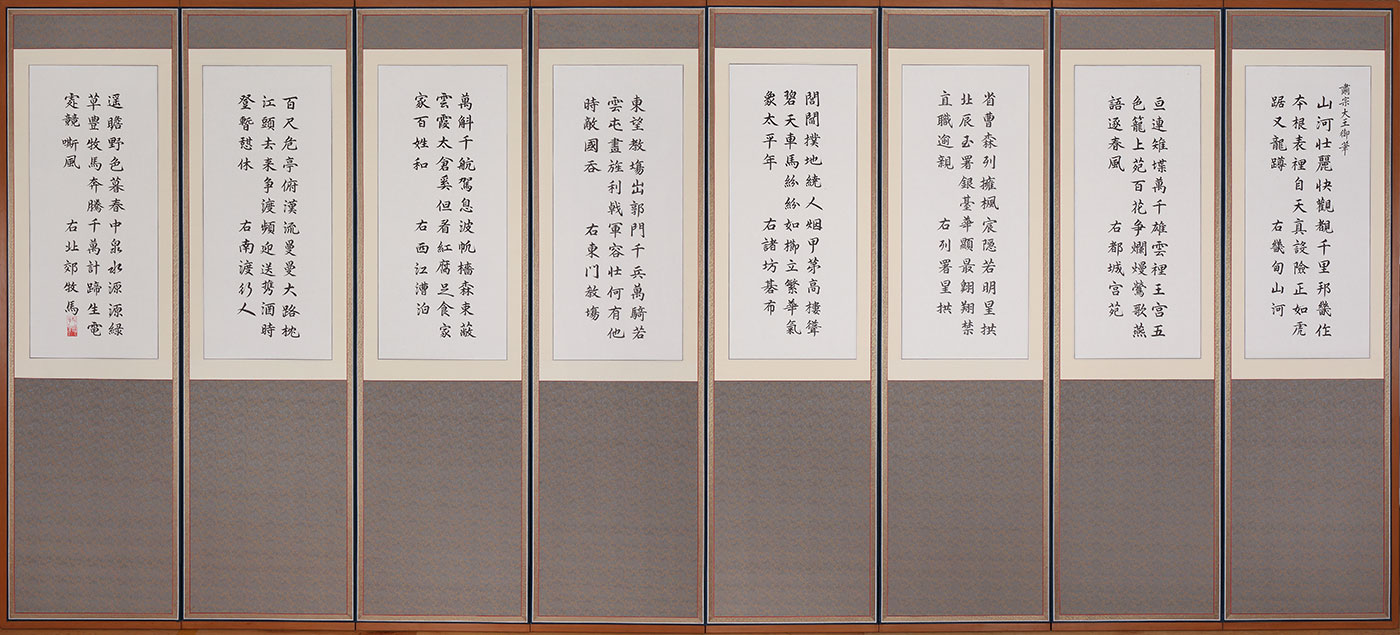 肅宗大王御筆
山河壯麗快觀覩千里邦畿作
本根表裡自天真設險正如虎
踞又龍蹲 右畿甸山河
亘連雉堞萬千雄雲裡王宮五
色籠上苑百花爭爛熳鶯歌燕
語逐春風 右都城宮苑
省曹森列擁楓宸隐若明星拱
北辰玉署銀臺華顯最翱翔禁
直職逾親 右列署星拱
閭閻撲地繞人烟甲第高樓聳
碧天車馬紛紛如擲立繁華氣
象太平年 右諸坊碁布
東望教塲出郭門千兵萬騎若
雲屯畫旌利戟軍容壯何有他
時敵國吞 右東门教塲
萬斛千航駕息波帆檣森束蔽
雲霞太倉奚但看紅腐足食家
家百姓和 右西江漕泊
百尺危亭俯漢流曼曼大路枕
江頭去来争渡頻迎送携酒時
登暫憩休 右南渡行人
遥瞻野色暮春中泉水源源緑
草豊牧馬奔騰千萬計蹄生電
霆競嘶風 右北郊牧馬